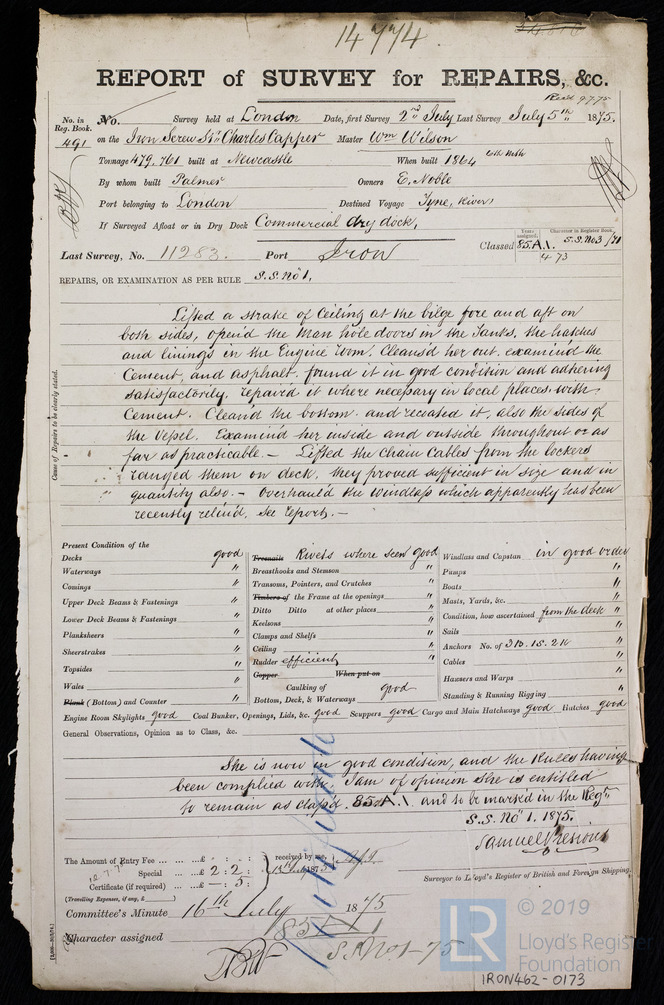 14774
REPORT of SURVEY for REPAIRS, &c.
Recd 9.7.75
No. in Reg. Book. 491
No. Survey held at London Date, first Survey 2nd July Last Survey July 5th 1875.
on the Iron Screw Str Charles Capper Master Wm Wilson
Tonnage 479.761 built at Newcastle When built 1864 6th Mth
By whom built Palmer Owners E. Noble
Port belonging to London Destined Voyage Tyne, River
If Surveyed Afloat or in Dry Dock Commercial dry dock.
Years assigned. Character in Register Book.
Classed 85.A.1. S.S. No 3 /71
4 73
Last Survey, No. 11283. Port Iron
REPAIRS, OR EXAMINATION AS PER RULE S.S. No 1.
Cause of Repairs to be clearly stated.
Lifted a strake of Ceiling at the bilge fore and aft on
both sides, open'd the Man hole doors in the Tanks. the hatches
and linings in the Engine room. Cleans'd her out. examin'd the
Cement, and asphalt. found it in good condition and adhering
satisfactorily, repair'd it where necessary in local places with
Cement. Clean'd the bottom. and recoated it, also the sides of
the Vessel. Examin'd her inside and outside throughout or as
far as practicable. - Lifted the Chain Cables from the lockers
ranged them on deck, they proved sufficient in size and in
quantity also. - Overhaul'd the windlass which apparently has been
recently relin'd, see report. -
Present Condition of the
Decks good
Waterways "
Comings "
Upper Deck Beams & Fastenings "
Lower Deck Beams & Fastenings "
Planksheers "
Sheerstrakes "
Topsides "
Wales "
Plank (Bottom) and Counter "
Treenails Rivets where seen good
Breasthooks and Stemson "
Transoms, Pointers, and Crutches "
Timbers of the Frame at the openings "
Ditto Ditto at other places "
Keelsons "
Clamps and Shelfs "
Ceiling "
Rudder efficient
Copper When put on
Caulking of Bottom, Deck, & Waterways good
Windlass and Capstan in good order
Pumps "
Boats "
Masts, Yards, &c. "
Condition, how ascertained from the deck "
Sails "
Anchors No. of 3B.1S.2K "
Cables "
Hawsers and Warps "
Standing & Running Rigging "
Engine Room Skylights good Coal Bunker, Openings, Lids, &c. good Scuppers good Cargo and Main Hatchways good Hatches good
General Observations, Opinion as to Class, &c.
She is now in good condition, and the Rules having
been complied with I am of opinion she is entitled
to remain as class'd. 85.A.1. and to be marked in the Regr
S.S. No 1. 1875.
Samuel Presious
Surveyor to Lloyd's Register of British and Foreign Shipping.
The Amount of Entry Fee £ : : received by me,
Special £ 2 : 2 :
Certificate (if required) - : 5 :
(Travelling Expenses, if any, £ )
Committee's Minute 16th July 1875
Character assigned 85 A 1
S.S. No 1-75
© 2019
LR
Lloyd's Register
Foundation
IRON462-0173